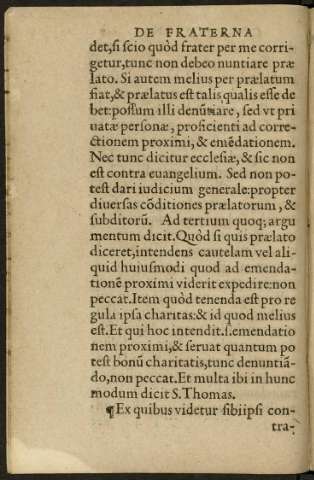 DE FRATERNA
det,si scio quòd frater per me corri-
getur,tunc non debeo nuntiare præ
lato. Si autem melius per prælatum
fiat,& prælatus est talis qualis esse de
bet:possum illi denũtiare, sed vt pri
uatæ personæ, proficienti ad corre-
ctionem proximi, & emẽdationem.
Nec tunc dicitur ecclesiæ, & sic non
est contra euangelium. Sed non po-
test dari iudicium generale:propter
diuersas cõditiones prælatorum, &
subditorũ. Ad tertium quoq; argu
mentum dicit. Quòd si quis prælato
diceret,intendens cautelam vel ali-
quid huiusmodi quod ad emenda-
tionẽ proximi viderit expedire:non
peccat.Item quòd tenenda est pro re
gula ipsa charitas:& id quod melius
est.Et qui hoc intendit.s.emendatio
nem proximi,& seruat quantum po
test bonũ charitatis,tunc denuntiã-
do,non peccat.Et multa ibi in hunc
modum dicit S.Thomas.
¶Ex quibus videtur sibiipsi con-
tra-